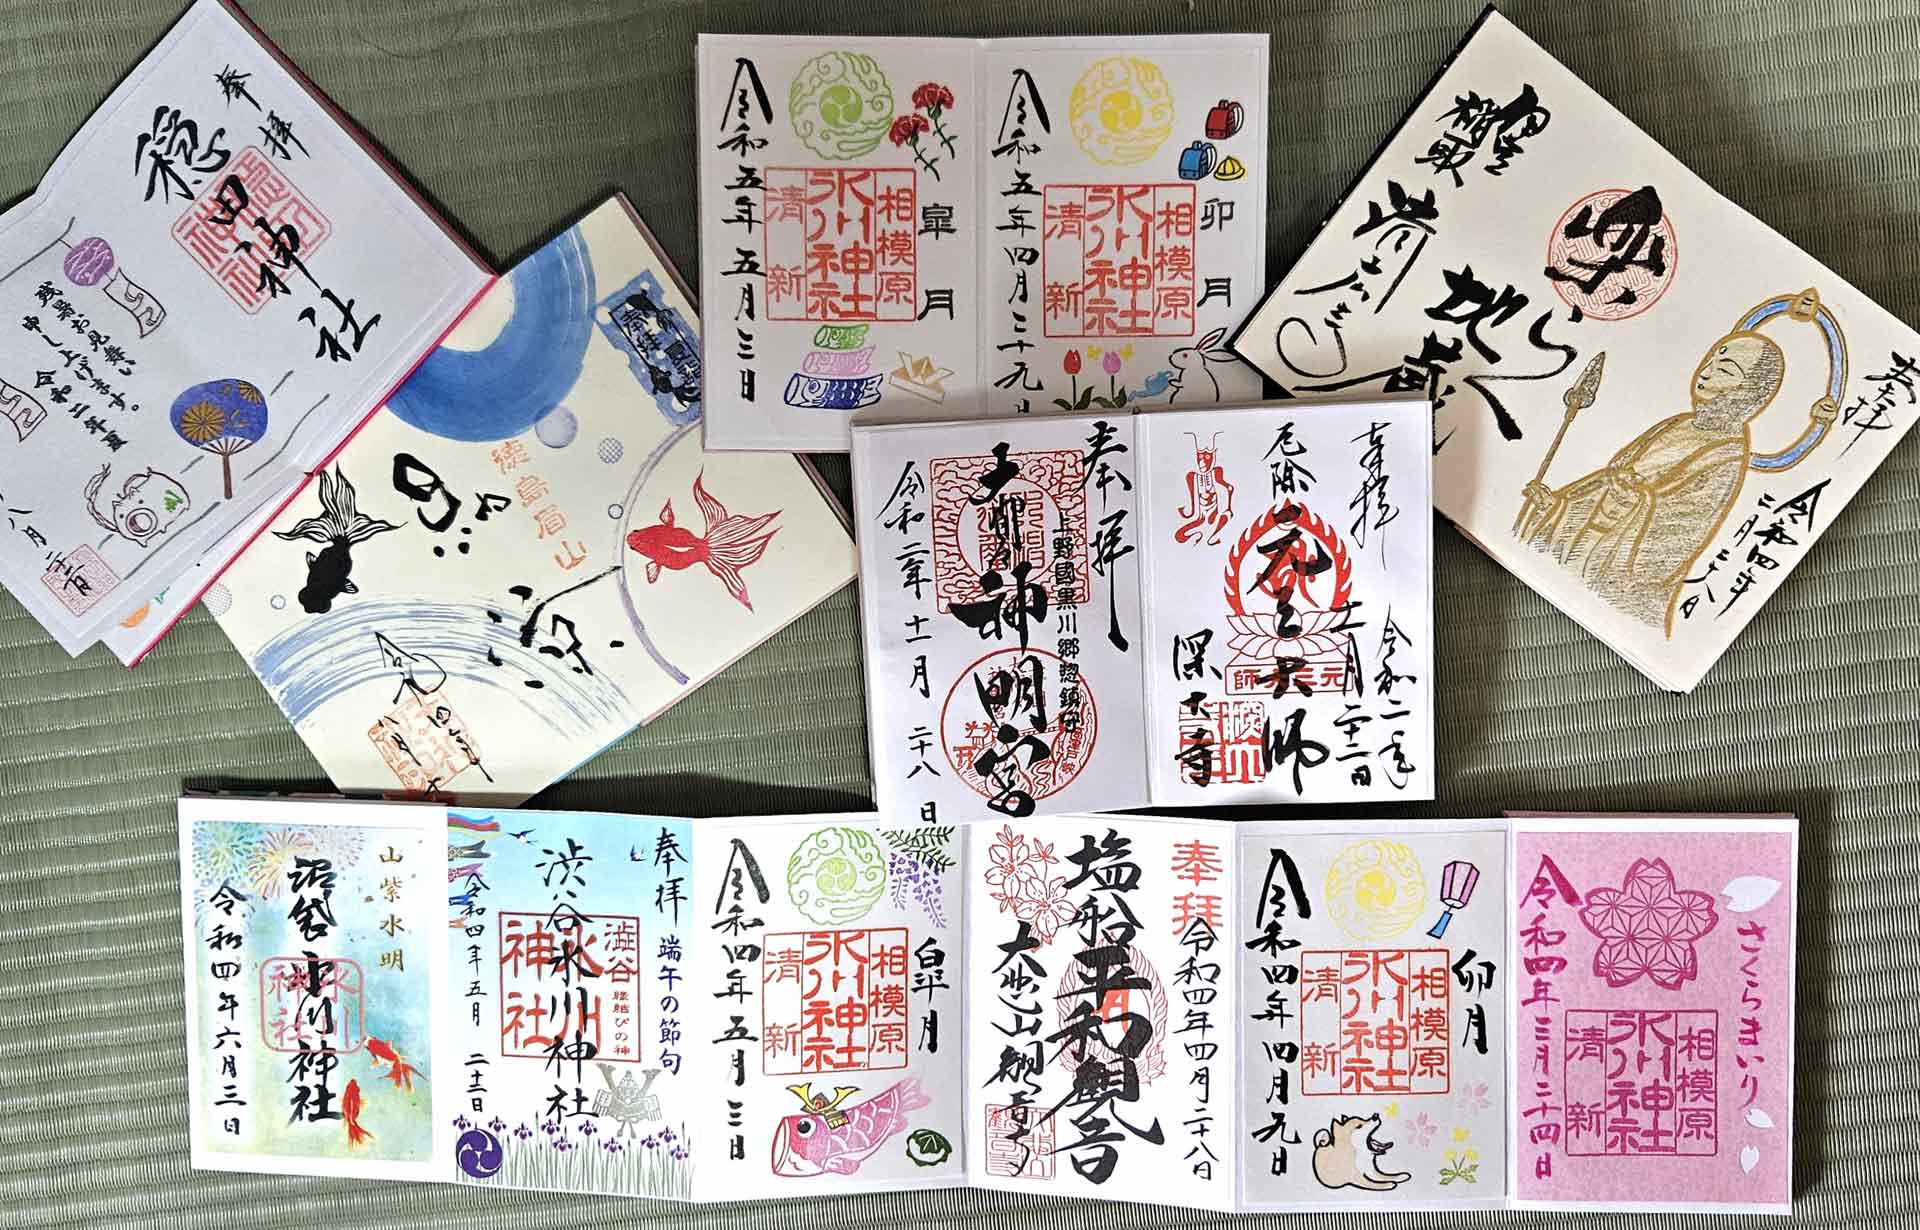 奉拝
穏田神社
残暑お見舞い
申し上げます。
令和二年夏
八月二十二日
徳島眉山
奉拝
皐月
相模原
氷川神社
清新
令和五年五月三日
卯月
相模原
氷川神社
清新
令和五年四月二十九日
伊豆
稲取
奉拝
地蔵
令和四年
三月二十八日
奉拝
上野國黒川郷惣鎮守
神明宮
令和二年十一月二十八日
奉拝
厄除
元三大師
元三大師
深大寺
令和二年
十一月二十二日
山紫水明
沼袋氷川神社
氷川神社
令和四年六月三日
奉拝
端午の節句
渋谷氷川神社
澁谷
縁結びの神
氷川神社
令和四年五月二十二日
皐月
相模原
氷川神社
清新
令和四年五月三日
奉拝
令和四年四月二十八日
塩船平和観音
大悲山観音寺
卯月
相模原
氷川神社
清新
令和四年四月九日
さくらまいり
相模原
氷川神社
清新
令和四年三月二十四日